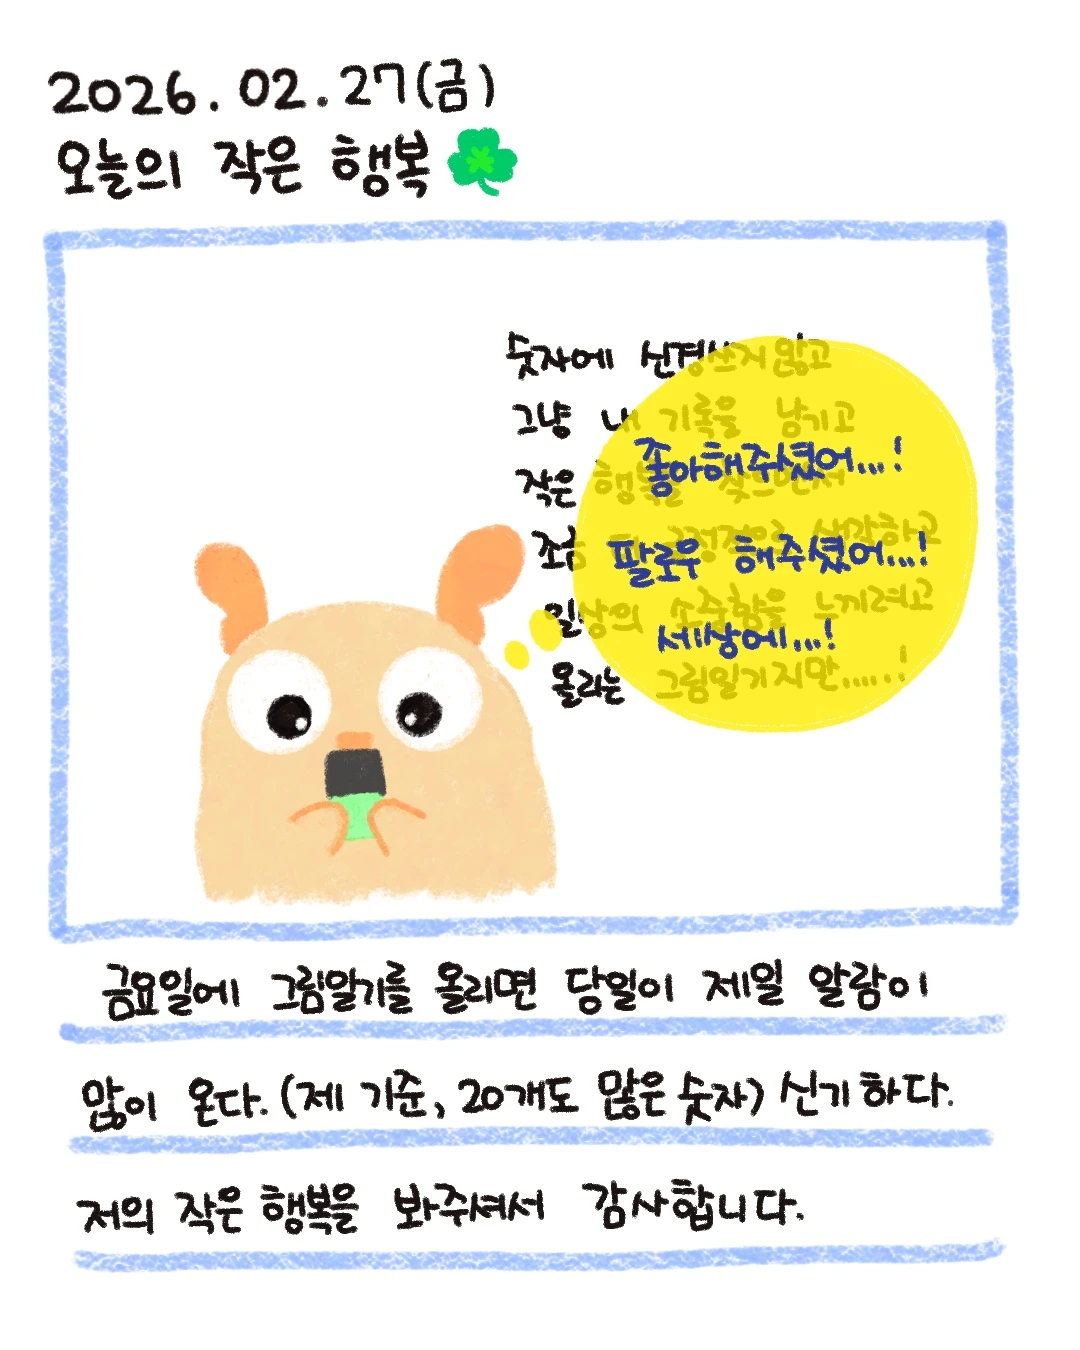 2026.02.27(금)
오늘의 작은 행복
숫자에 신경쓰지않고
그냥 내 기록을 남기고
작은 행복을 찾으면서
조금 더 긍정적으로 생각하고
일상의 소중함을 누끼려고
올리는 그림일기지만.....!
좋아해주셨어...!
팔로우 해주셨어...!
세상에...!
금요일에 그림일기를 올리면 당일이 제일 알람이
많이 온다. (제 기준, 20개도 많은 숫자) 신기하다.
저의 작은 행복을 봐주셔서 감사합니다.